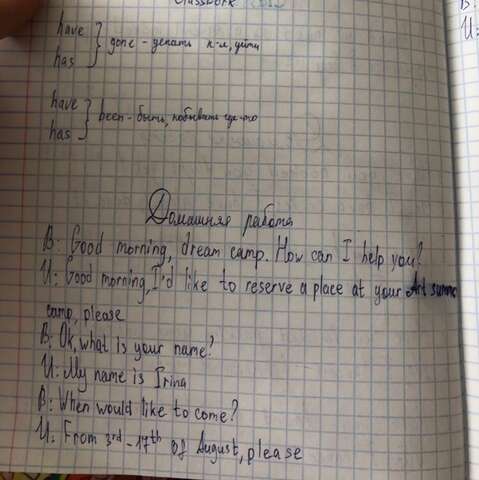 Classwork
have
has
gone - уехать к-л, уйти
have
has
been - быть, побывать где-то
Домашняя работа
B: Good morning, dream camp. How can I help you?
U: Good morning, I'd like to reserve a place at your Art summe
camp, please
B: Ok, what is your name?
U: My name is Irina
B: When would like to come?
U: From 3rd - 17th of August, please
B:
U: